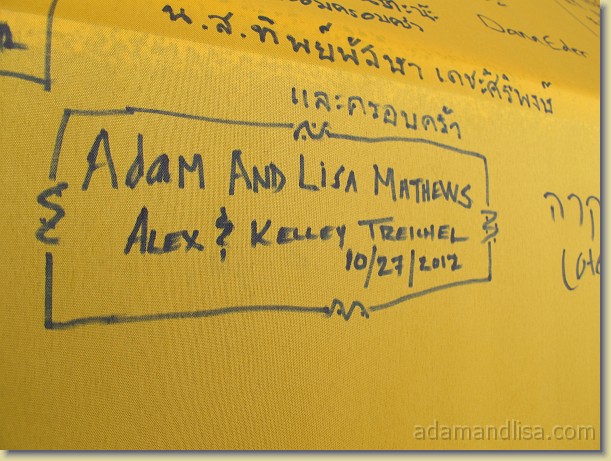 Dana Eder
น.ส.ทิพย์พัรษา เดชะศิริพงษ์
และครอบครัว
Adam And Lisa Mathews
Alex & Kelley Treichel
10/27/2012
adamandlisa.com